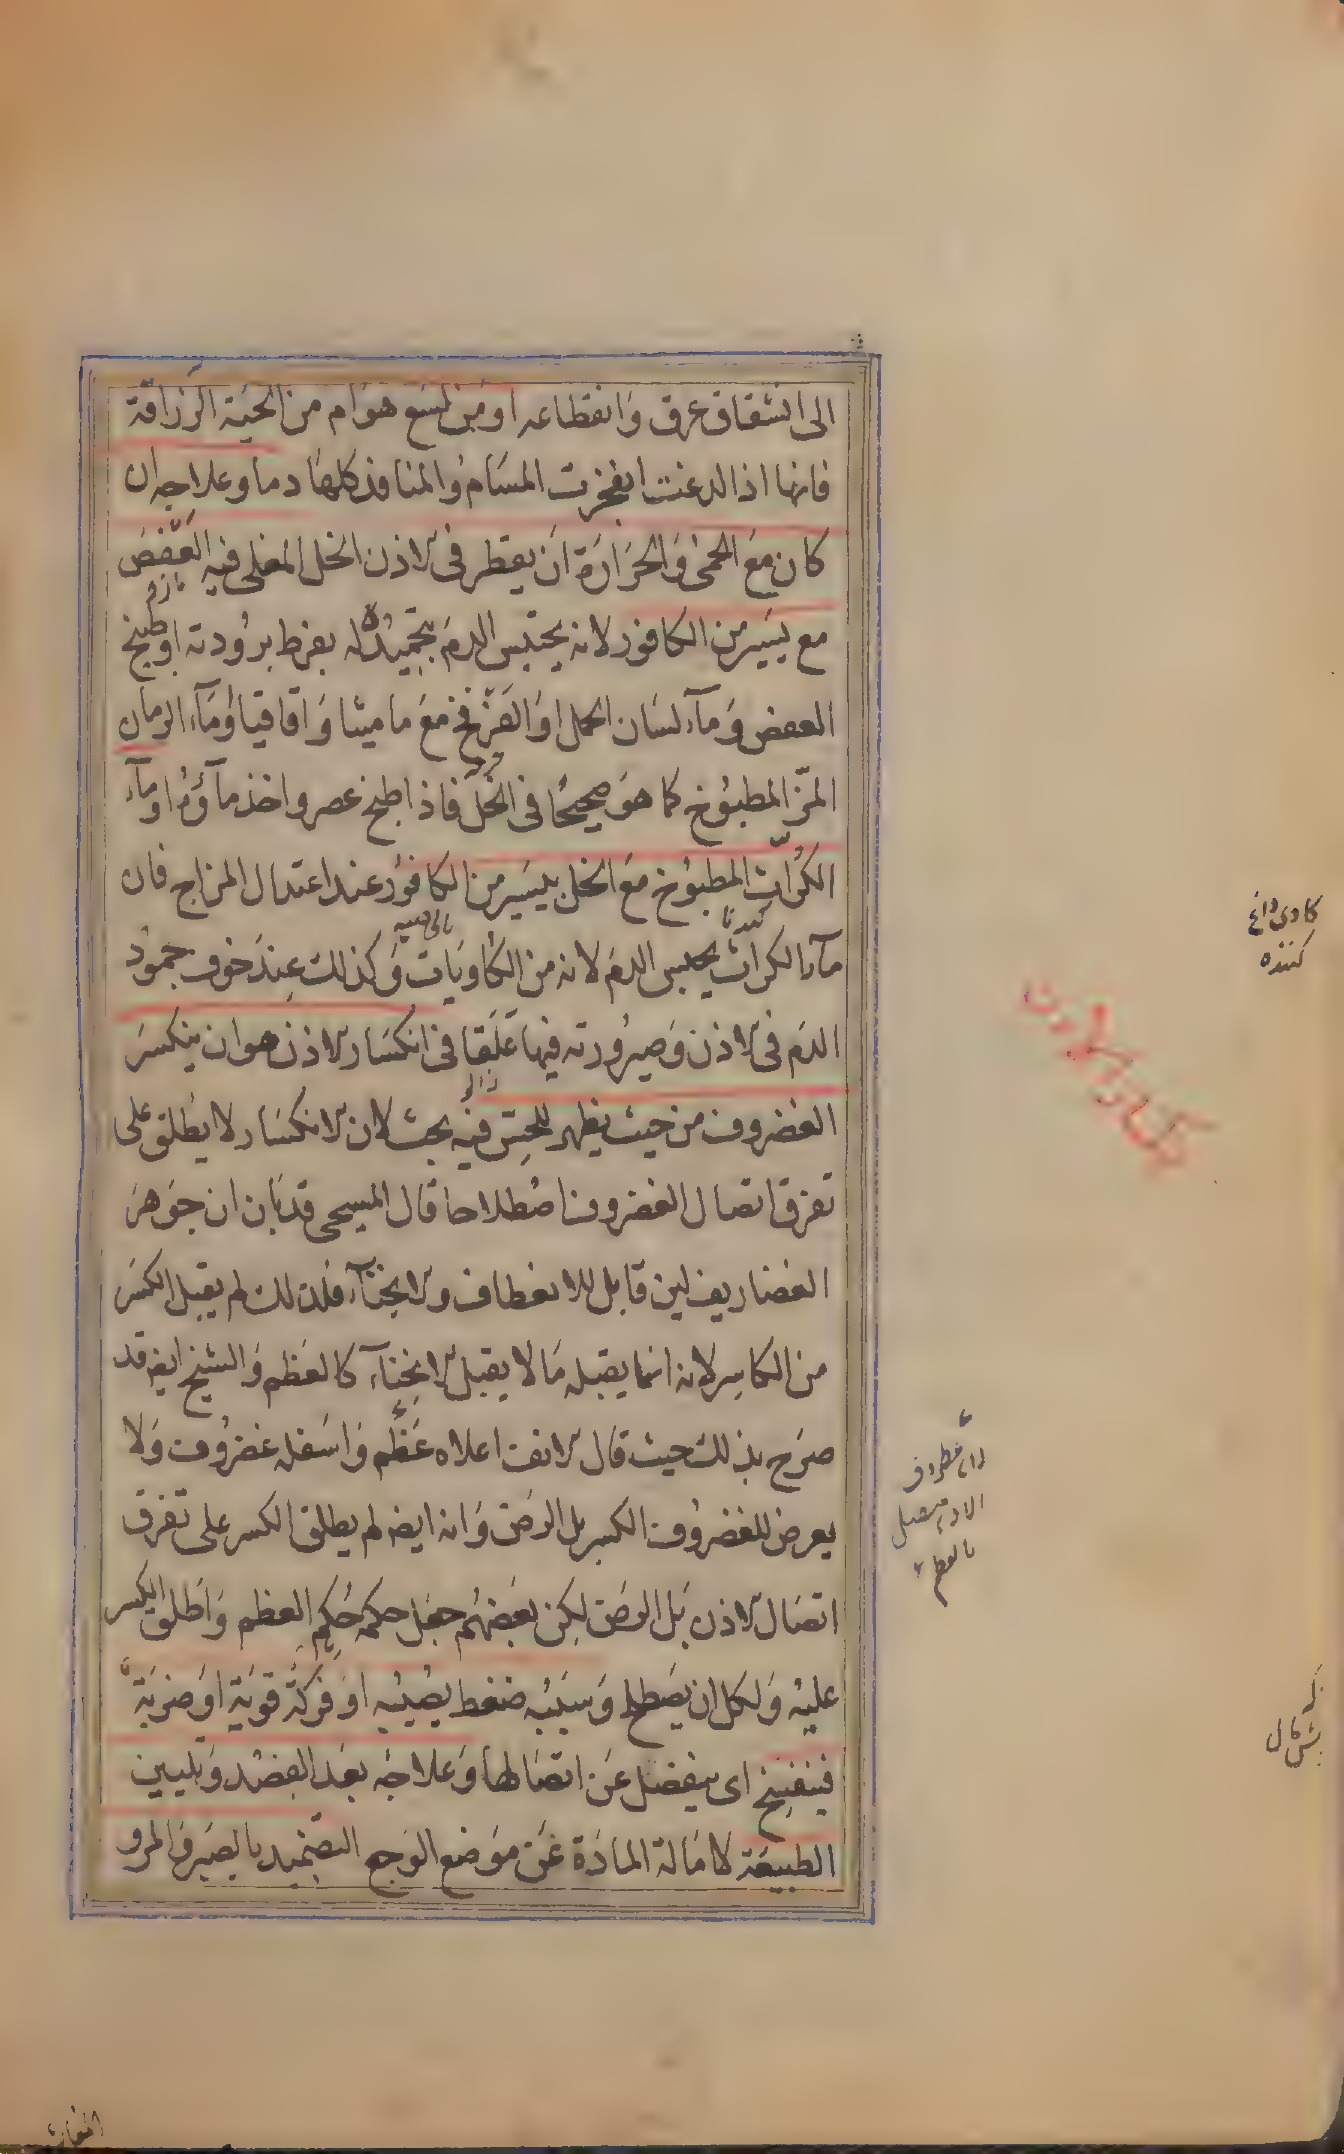 الى انشقاق عرق وَانقطاعه او مِن لسَع هوَام من الحيَة الزرَاقة
فانها اذا لدغت انفجرت المسَام وَالمنافذ كلهَا دما وعلاجه ان
كان مَع الحمىٰ وَالحرَارَة ان يقطر فى الاذن الخل المغلى فيه العَفصَ
مازو
مع يسَير من الكافور لانه يحتبس الدمَ بتجميدُه له بفرط برُودته او طبيخ
العفص وَمآء لسَان الحمل او الفَرْفخ مَع ماميثا وَاقاقيا وَمَآء الرمان
خرفه
المزّ المطبُوخ كما هوَ صحيحًا فى الخلّ فاذا طبخ عصر واخذ مآؤه او مآء
الكرَّاث المطبوُخ مَع الخل بيسَير من الكافوُر عند اعتدال المزاج فان
كندنا
مآء الكراث يحبس الدم لانه من الكاويَات وَكذلك عِندَ خوف جموُد
الدَم فى الاذن وَصيرُورته فيها عَلَقا فى انكسَار الاذن هو ان ينكسَر
الغضروف من حيث يظهر للحِسّ فيْه بحث لان الانكسَار لا يطُلق على
تفرق اتصال الغضروف اصُطلاحا قال المسيحى قد بَان ان جوَهرَ
الغضاريف لين قابل للانعطاف والانحنآء فلذلك لم يقبل الكسَر
من الكاسِر لانه انما يقبله مَا لا يقبل الانحِنآء كالعَظم وَالشيخ ايضه قد
صرَح بذلك حيث قال الانف اعلاه عَظم وَاسفله غضرُوف وَلا
يعرض للغضرُوف الكسر بل الرضّ وَانه ايضه لم يطلق الكسر على تفرق
اتصَال الاذن بَل الرضّ لكِن بعَضهُم جعَل حكمه حُكم العظم وَاطلق الكسر
عليْه وَلكل ان يصَطلح وَسَببُه ضغط يصُيبُه او فركَةٌ قويَة اوَ ضربَةٌ
فينفسِخ اى ينفصل عَن اتصَالها وَعلاجُه بعَد الفصَد وَتليين
الطبيعَة لامَالة المادَة عَن موَضع الوَجع التضّميد بالصَبر وَالمرو
كاوى داغ
كننده
انكسار الاذن
الاذن متصل
بالعظم